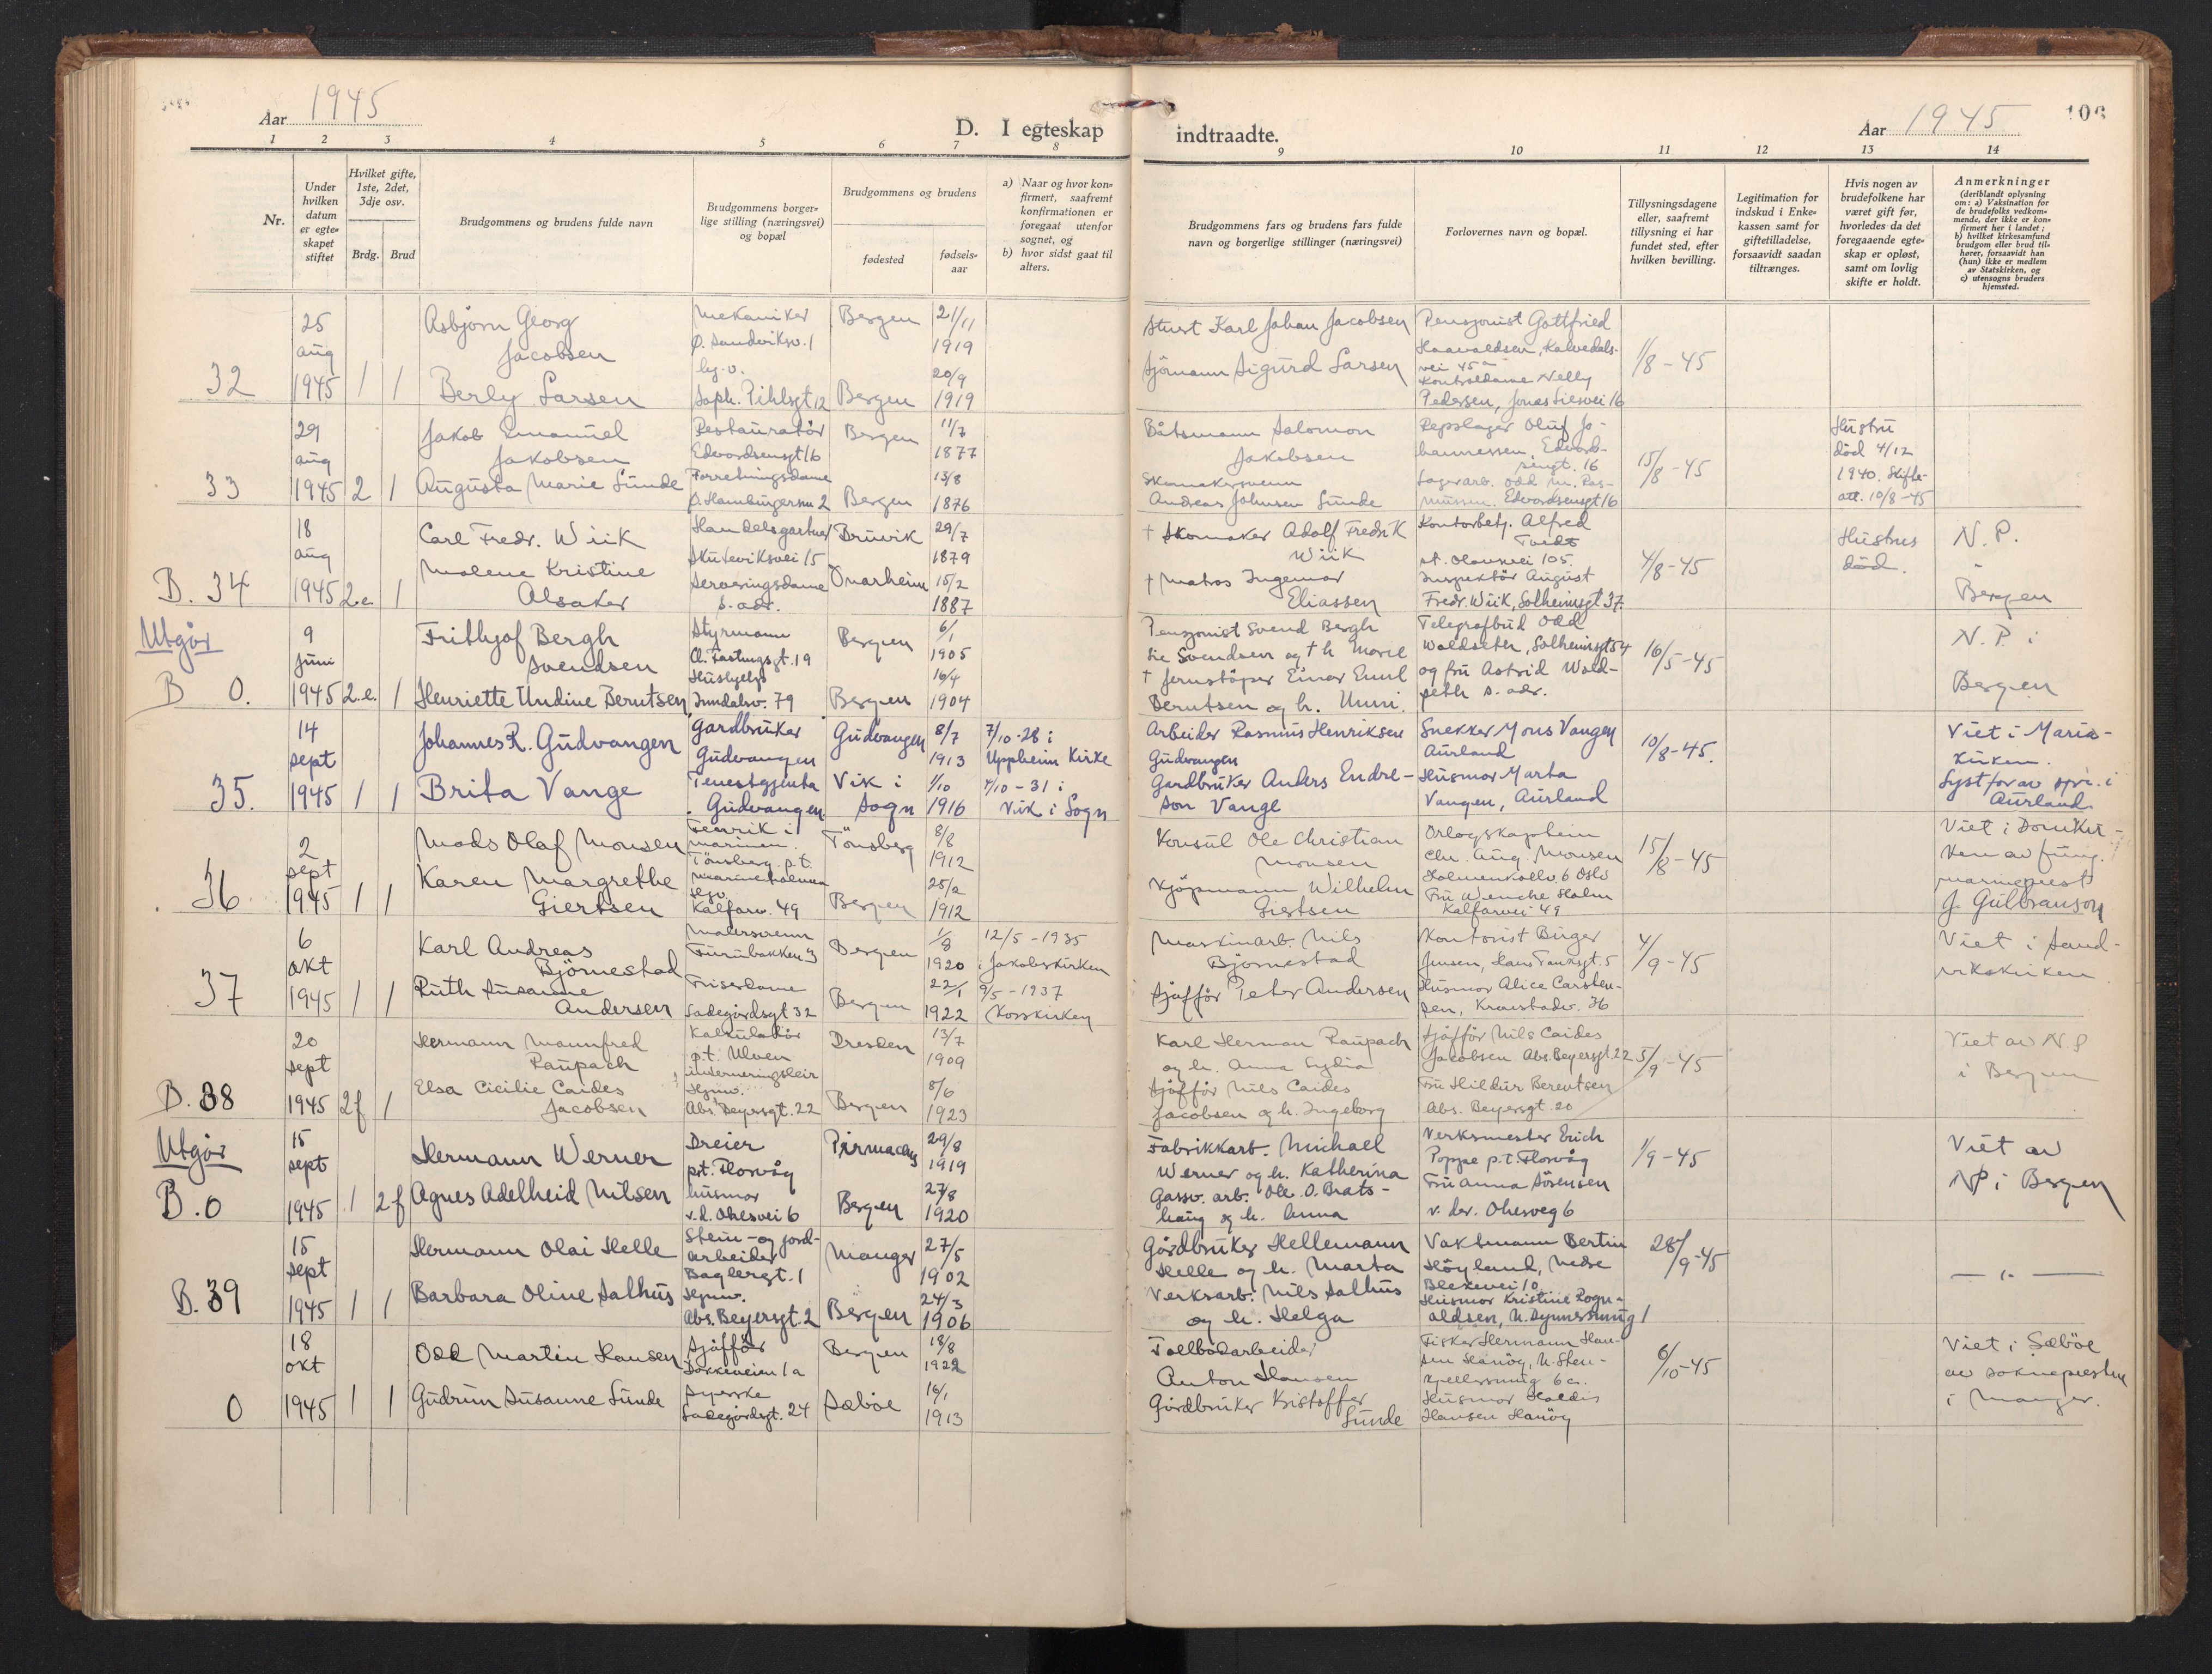 Aar 1945
D. I egteskap indtraadte.
Aar 1945
106
1 2 3 4 5 6 7 8 9 10 11 12 13 14
Nr.
Under hvilken datum er egte-skapet stiftet
Hvilket gifte, 1ste, 2det, 3dje osv.
Brdg. Brud
Brudgommens og brudens fulde navn
Brudgommens borger-lige stilling (næringsvei) og bopæl
Brudgommens og brudens
fødested
fødsels-aar
a) Naar og hvor kon-firmert, saafremt konfirmationen er foregaat utenfor sognet, og
b) hvor sidst gaat til alters.
Brudgommens fars og brudens fars fulde navn og borgerlige stillinger (næringsvei)
Forlovernes navn og bopæl.
Tillysningsdagene eller, saafremt tillysning ei har fundet sted, efter hvilken bevilling.
Legitimation for indskud i Enke-kassen samt for giftetilladelse, forsaavidt saadan tiltrænges.
Hvis nogen av brudefolkene har været gift før, hvorledes da det foregaaende egte-skap er opløst, samt om lovlig skifte er holdt.
Anmerkninger
(deriblandt oplysning om: a) Vaksination for de brudefolks vedkom-mende, der ikke er kon-firmert her i landet; b) hvilket kirkesamfund brudgom eller brud til-hører, forsaavidt han (hun) ikke er medlem av Statskirken, og c) utensogns bruders hjemsted.
32
25 aug 1945
1 1
Asbjørn Georg
Jacobsen
Berly Larsen
Mekaniker
Ø. Sandviksv. 1
Soph. Pihlsgt 12
Bergen
21/11 1919
Bergen
20/9 1919
Stuert Karl Johan Jacobsen
Sjömann Sigurd Larsen
Pensjonist Gottfried
Haavaldsen, Kalvedals-
vei 45a
Kontordame Nelly
Pedersen, Jonas Liesvei 16
1/8-45
33
29 aug 1945
2 1
Jakob Emanuel
Jakobsen
Augusta Marie Sunde
Restauratør
Edvardsensgt 16
Forretningsdame
Ø. Hamburgersm 2
Bergen
11/7 1877
Bergen
13/8 1876
Båtsmann Salomon
Jakobsen
Skomakersvenn
Andreas Johnsen Sunde
Repslager Oluf Jo-
hannessen, Edvard-
sensgt. 16
Lagerarb. Odd M. Ras-
mussen. Edvardsensgt 16
15/8-45
Hustru
död 4/12
1940. Skifte-
att. 10/8-45
B. 34
18 aug 1945
2.e. 1
Carl Fredr. Wiik
Malene Kristine
Alsaker
Handelsgartner
Skuteviksvei 15
Serveringsdame
s. adr.
Bruvik
29/7 1879
Ønarheim
15/2 1887
† Skomaker Adolf Fredrik
Wiik
† Matros Ingemar
Eliassen
Kontorbetj. Alfred
Tvedt
st. Olavsvei 105.
Inspektör August
Fredr. Wiik, Solheimsgt 37.
4/8-45
Hustru
död.
N.P.
Bergen
Utgår
B 0.
9 Juni 1945
2.e. 1
Frithjof Bergh
Svendsen
Henriette Undine Berntsen
Styrmann
Cl. Fastingsgt. 19
Hushjelp
Inndalsv. 79
Bergen
6/1 1905
Bergen
16/4 1904
Pensjonist Svend Bergh
Svendsen og † h Marie
† Jernstöper Einar Emil
Berntsen og h. Unni.
Telegrafbud Odd
Woldseth, Solheimsgt 54
og fru Astrid Wold-
seth s. adr.
16/5-45
N.P. i
Bergen
35.
14 sept 1945
1 1
Johannes R. Gudvangen
Brita Vange
Gardbruker
Gudvangen
Tenestgjenta
Gudvangen
Gudvangen
8/7 1913
7/10-28 i
Uppheim Kirke
Vik i
Sogn
1/10 1916
4/10-31 i
Vik i Sogn
Arbeider Rasmus Henriksen
Gudvangen
Gardbruker Anders Endre-
son Vange
Snekker Mons Vangen
Aurland
Husmor Marta
Vangen, Aurland
10/8-45.
Viet i Maria-
kirken.
Lyst for av spr. i
Aurland
36
2 sept 1945
1 1
Mads Olaf Monsen
Karen Margrethe
Giertsen
Fenrik i
marinen.
Tönsberg p.t.
Marineholmen
Hjv.
Kalfarv. 49
Tönsberg
8/8 1912
Bergen
25/2 1912
Konsul Ole Christian
Monsen
Kjöpmann Wilhelm
Giertsen
Orlogskaptein
Chr. Aug. Monsen
Holmenkollv. 6 Oslo
Fru Wenche Holm
Kalfarvei 49
15/8-45
Viet i Domkir-
ken av fung.
marineprest
J Gulbranson
37
6 okt 1945
1 1
Karl Andreas
Björnestad
Ruth Susanne
Andersen
Malersvenn
Furubakken 3
Friserdame
Ladegårdsgt 32
Bergen
1/8 1920
12/5-1935
i Jakobskirken
Bergen
22/1 1922
9/5-1937
Korskirken
Maskinarb. Nils
Björnestad
Sjåffør Peter Andersen
Kontorist Birger
Jensen, Hans Tanksgt. 5
Husmor Alice Carsten-
sen, Kronstadv. 36
4/9-45
Viet i Sand-
vikskirken
B. 38
20 sept 1945
2f 1
Hermann Mannfred
Raupach
Elsa Cicilie Caides
Jacobsen
Kalkulatör
p.t. Ulven
interneringsleir
Hjmv.
Abs. Beyersgt. 22
Dresden
13/7 1909
Bergen
8/6 1923
Karl Herman Raupach
og h. Anna Lydia
Sjåffør Nils Caides
Jacobsen og h. Ingeborg
Sjåffør Nils Caides
Jacobsen Abs. Beyersgt. 22
Fru Hildur Berentsen
Abs. Beyersgt. 20
5/9-45
Viet av N.P
i Bergen
Utgår
B. 0
15 sept 1945
1 2f
Hermann Werner
Agnes Adelheid Nilsen
Dreier
p.t. Florvåg
husmor
v.d. Ohesvei 6
Pirmacens
29/8 1919
Bergen
27/8 1920
Fabrikkarb. Michael
Werner og h. Katherina
Gassv. arb. Ole O. Brats-
haug og h. Anna
Verksmester Erich
Poppe p.t. Florvåg
Fru Anna Sörensen
v. der. Oheveg 6
1/9-45
Viet av
NP i Bergen
B. 39
15 sept 1945
1 1
Hermann Olai Helle
Barbara Oline Salhus
Stein- og jord-
arbeider
Baglergt. 1
Hjmv.
Abs. Beyersgt. 2
Manger
27/5 1902
Bergen
24/3 1906
Gårdbruker Hellemann
Helle og h. Marta
Verksarb. Nils Salhus
og h. Helga
Vaktmann Bertin
Höyland, Nedre
Blekevei 10
Husmor Kristine Rogn-
aldsen, N. Dynnersmug 1
28/9-45
— " —
0
18 okt 1945
1 1
Odd Martin Hansen
Gudrun Susanne Sunde
Sjåffør
Dokkeveien 1a
Syerske
Ladegårdsgt. 24
Bergen
18/8 1922
Sæböe
16/1 1913
Tollbodarbeider
Anton Hansen
Gårdbruker Kristoffer
Sunde
Fisker Hermann Han-
sen Hanöy, N. Sten-
kjellersmug 6a.
Husmor Haldis
Hansen Hanöy
6/10-45
Viet i Sæböe
av sokneprest
i Manger.